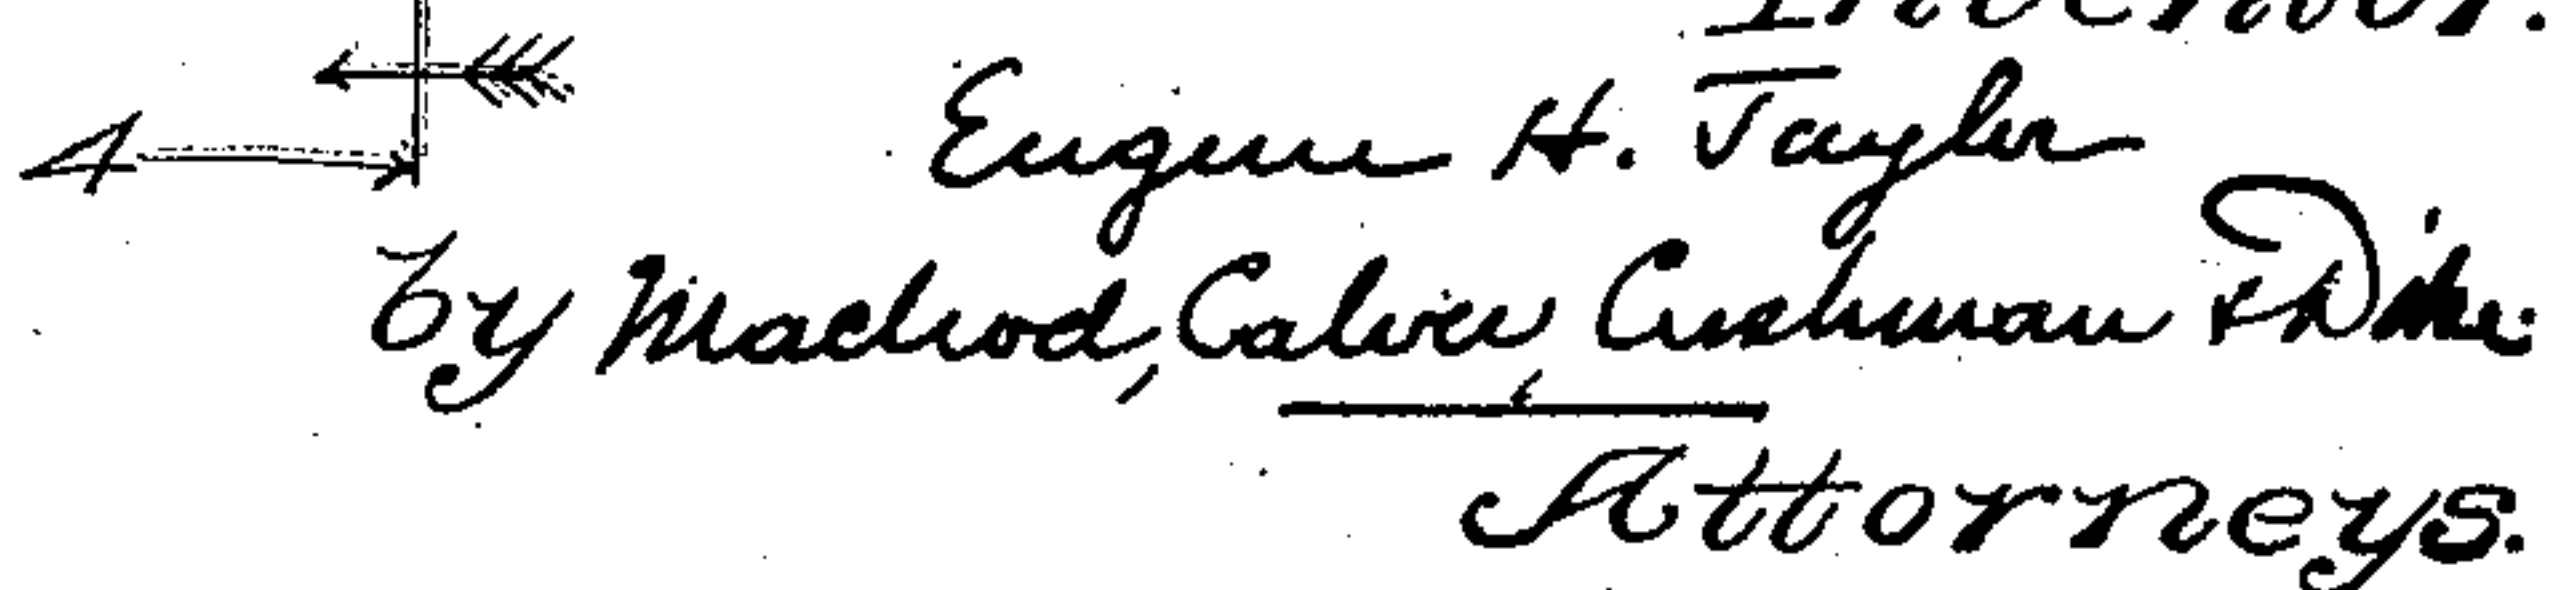 Inventor.
4
Eugene H. Taylor
by Macleod, Calver, Cushman & Dike.
Attorneys.